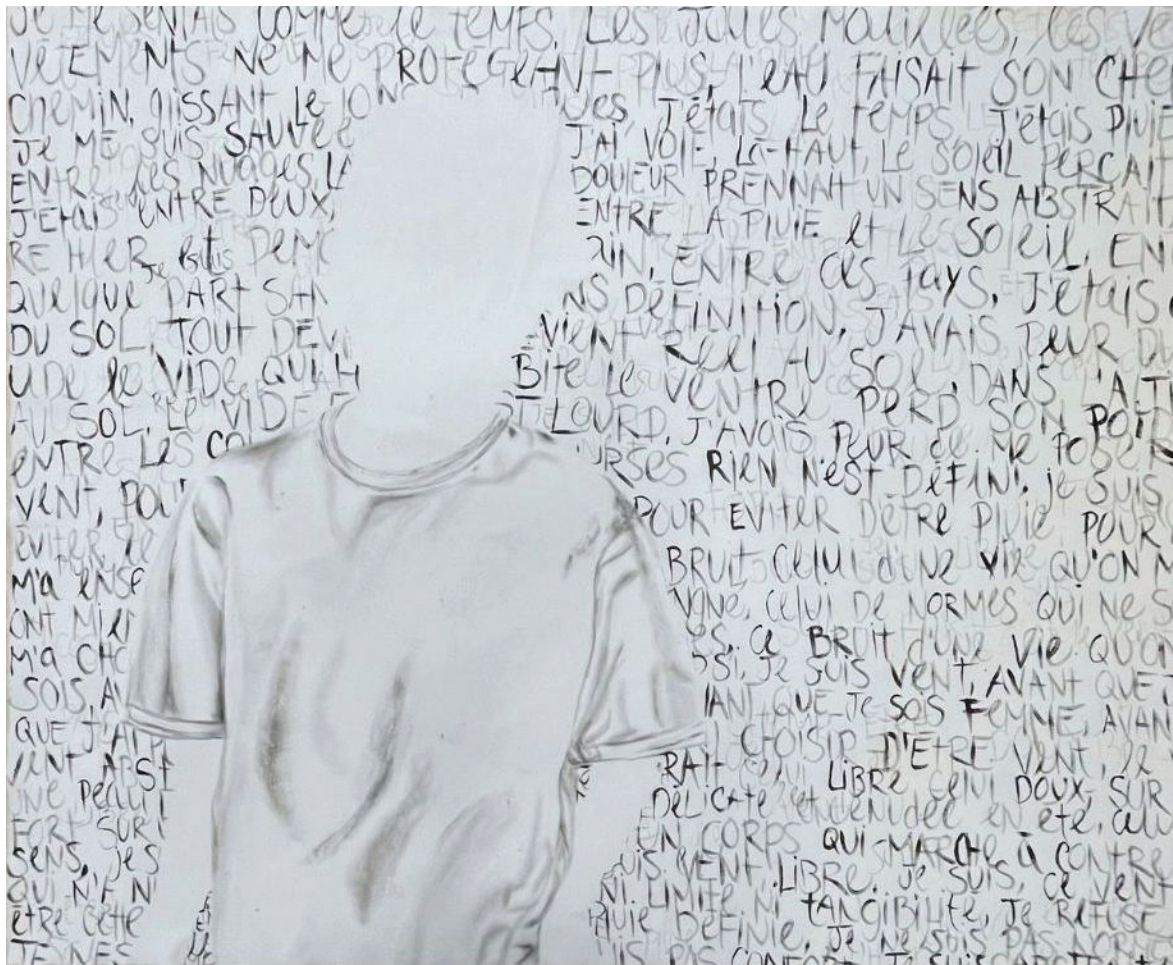 JE ME SENTAIS COMME le TEMPS, LES JOUES MOUILLÉES, les VÊ
VÊTEMENTS NE ME PROTÉGEANT PLUS, L'EAU FAISAIT SON CHE
CHEMIN, GLISSANT LE LON ues, J'étais Le TEMPS J'étais PLUIE
Je ME SUIS SAUVÉE J'AI VOLÉ, LÀ-HAUT, LE SOLEIL PERÇAIT
ENTRE LES NUAGES, LA DOULEUR PRENNAIT UN SENS ABSTRAIT,
J'ÉTAIS ENTRE DEUX, ENTRE LA PLUIE et LE SOLEIL, EN
RE HIER et DEM IN, ENTRE CES PAYS, J'ÉTAIS
QUELQUE PART SAN NS DÉFINITION, J'AVAIS PEUR DU
DU SOL, TOUT DEVI VIENT RÉEL AU SOL, DANS L'ALTI
UDE le VIDE QUI H BITE LE VENTRE PERD SON POID
AU SOL, LE VIDE LOURD, J'AVAIS PEUR de ME POSER
ENTRE LES CO URSES RIEN N'EST DÉFINI. je SUIS
VENT, POU POUR EVITER D'ÊTRE PLUIE POUR
éviter le BRUIT, Celui d'UNE VIE QU'ON M
M'a ENSE GNE, CELUI DE NORMES QUI NE S
ONT MIEN ES. Ce BRUIT d'une Vie QU'ON
M'A CHO SI, Je SUIS VENT, AVANT QUE J
SOIS, AV ANT QUE Je SOIS FEMME, AVAN
QUE J'AI P CHOISIR D'ÊTRE VENT, le
VENT ABST RAIT celui LIBRE Celui DOUX SUR
UNE Peau DÉLICATE et dénudée en été, celu
FORT SUR UN CORPS QUI MARCHE à CONTRE
SENS, je S UIS VENT LIBRE. Je SUIS, CE VENT
QUI N'A N NI LIMITE NI TANGIBILITÉ, Je REFUSE
ÊTRE CETTE PLUIE DÉFINIE, JE NE SUIS PAS NORME
JE NE S IS PAS CONFOR